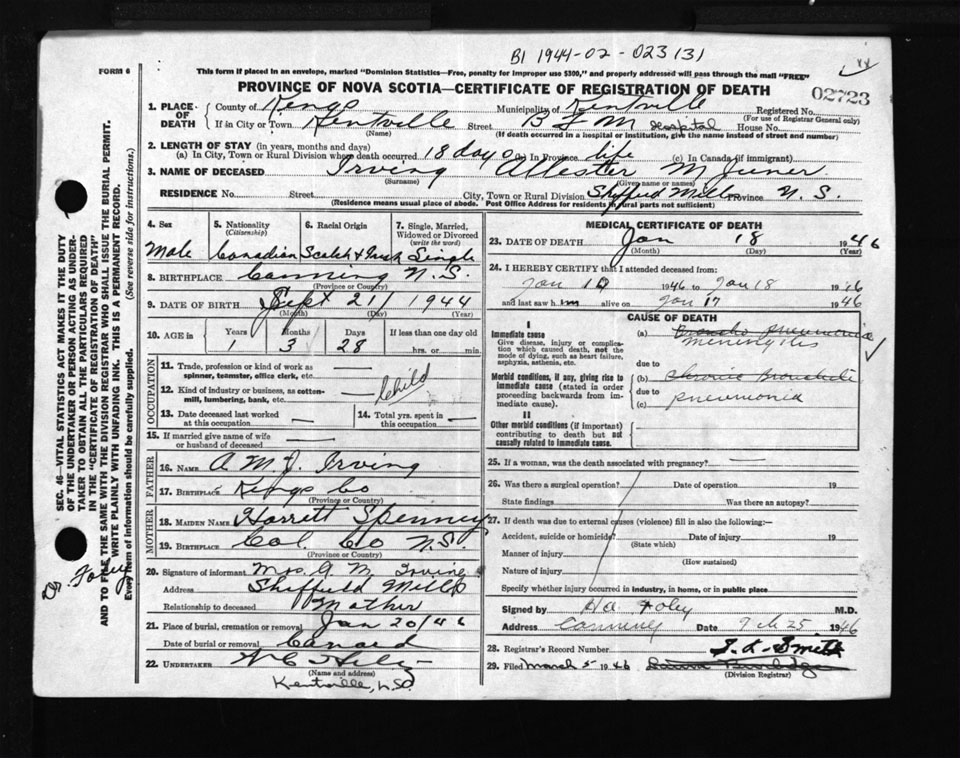 B1 1944-02-023131
FORM 6
This form if placed in an envelope, marked "Dominion Statistics—Free, penalty for improper use $300," and properly addressed will pass through the mail "FREE"
PROVINCE OF NOVA SCOTIA—CERTIFICATE OF REGISTRATION OF DEATH
02723
1. PLACE OF DEATH County of Kings Municipality of Kentville Registered No.
(For use of Registrar General only)
If in City or Town Kentville Street B F M Hospital House No.
(Name) (If death occurred in a hospital or institution, give the name instead of street and number)
2. LENGTH OF STAY (in years, months and days)
(a) In City, Town or Rural Division where death occurred 18 days (b) In Province life (c) In Canada (if immigrant)
3. NAME OF DECEASED Irving Allester M Juner
(Surname) (Given name or names)
RESIDENCE No. Street City, Town or Rural Division Sheffied Mills Province N.S.
(Residence means usual place of abode. Post Office Address for residents in rural parts not sufficient)
4. Sex 5. Nationality (Citizenship) 6. Racial Origin 7. Single, Married, Widowed or Divorced (write the word)
Male Canadian Scotch & Irish Single
8. BIRTHPLACE Canning N.S.
(Province or Country)
9. DATE OF BIRTH Sept 21 1944
(Month) (Day) (Year)
10. AGE in Years Months Days If less than one day old
1 3 28 hrs. or min.
OCCUPATION
11. Trade, profession or kind of work as spinner, teamster, office clerk, etc. —
12. Kind of industry or business, as cotton-mill, lumbering, bank, etc. — Child
13. Date deceased last worked at this occupation — 14. Total yrs. spent in this occupation —
15. If married give name of wife or husband of deceased —
FATHER
16. NAME A M J. Irving
17. BIRTHPLACE Kings Co
(Province or Country)
MOTHER
18. MAIDEN NAME Harrett Spenney
19. BIRTHPLACE Col. Co N.S.
(Province or Country)
20. Signature of informant Mrs. A. M. Irving
Address Sheffield Mills
Relationship to deceased Mother
21. Place of burial, cremation or removal Jan 20/46
Date of burial or removal Canard
22. UNDERTAKER
(Name and address)
Kentville, N.S.
MEDICAL CERTIFICATE OF DEATH
23. DATE OF DEATH Jan 18 1946
(Month) (Day) (Year)
24. I HEREBY CERTIFY that I attended deceased from:
Jan 10 1946 to Jan 18 1946
and last saw him alive on Jan 17 1946
CAUSE OF DEATH
I
Immediate cause
Give disease, injury or complication which caused death, not the mode of dying, such as heart failure, asphyxia, asthenia, etc.
(a) Broncho pneumonia
due to
Morbid conditions, if any, giving rise to immediate cause (stated in order proceeding backwards from immediate cause).
(b) chronic Bronchitis
due to
(c) pneumonia
II
Other morbid conditions (if important) contributing to death but not causally related to immediate cause.
25. If a woman, was the death associated with pregnancy? —
26. Was there a surgical operation? Date of operation 19
State findings Was there an autopsy?
27. If death was due to external causes (violence) fill in also the following:—
Accident, suicide or homicide? Date of injury 19
(State which)
Manner of injury
(How sustained)
Nature of injury
Specify whether injury occurred in industry, in home, or in public place
Signed by Foley M.D.
Address Canning Date Feb 25 1946
28. Registrar's Record Number
29. Filed March 5 1946 Smith
(Division Registrar)
SEC. 46—VITAL STATISTICS ACT MAKES IT THE DUTY OF THE UNDERTAKER OR PERSON ACTING AS UNDERTAKER TO OBTAIN ALL THE PARTICULARS REQUIRED IN THE "CERTIFICATE OF REGISTRATION OF DEATH"
AND TO FILE THE SAME WITH THE DIVISION REGISTRAR WHO SHALL ISSUE THE BURIAL PERMIT.
WRITE PLAINLY WITH UNFADING INK. THIS IS A PERMANENT RECORD.
Every item of information should be carefully supplied. (See reverse side for instructions.)
Foley